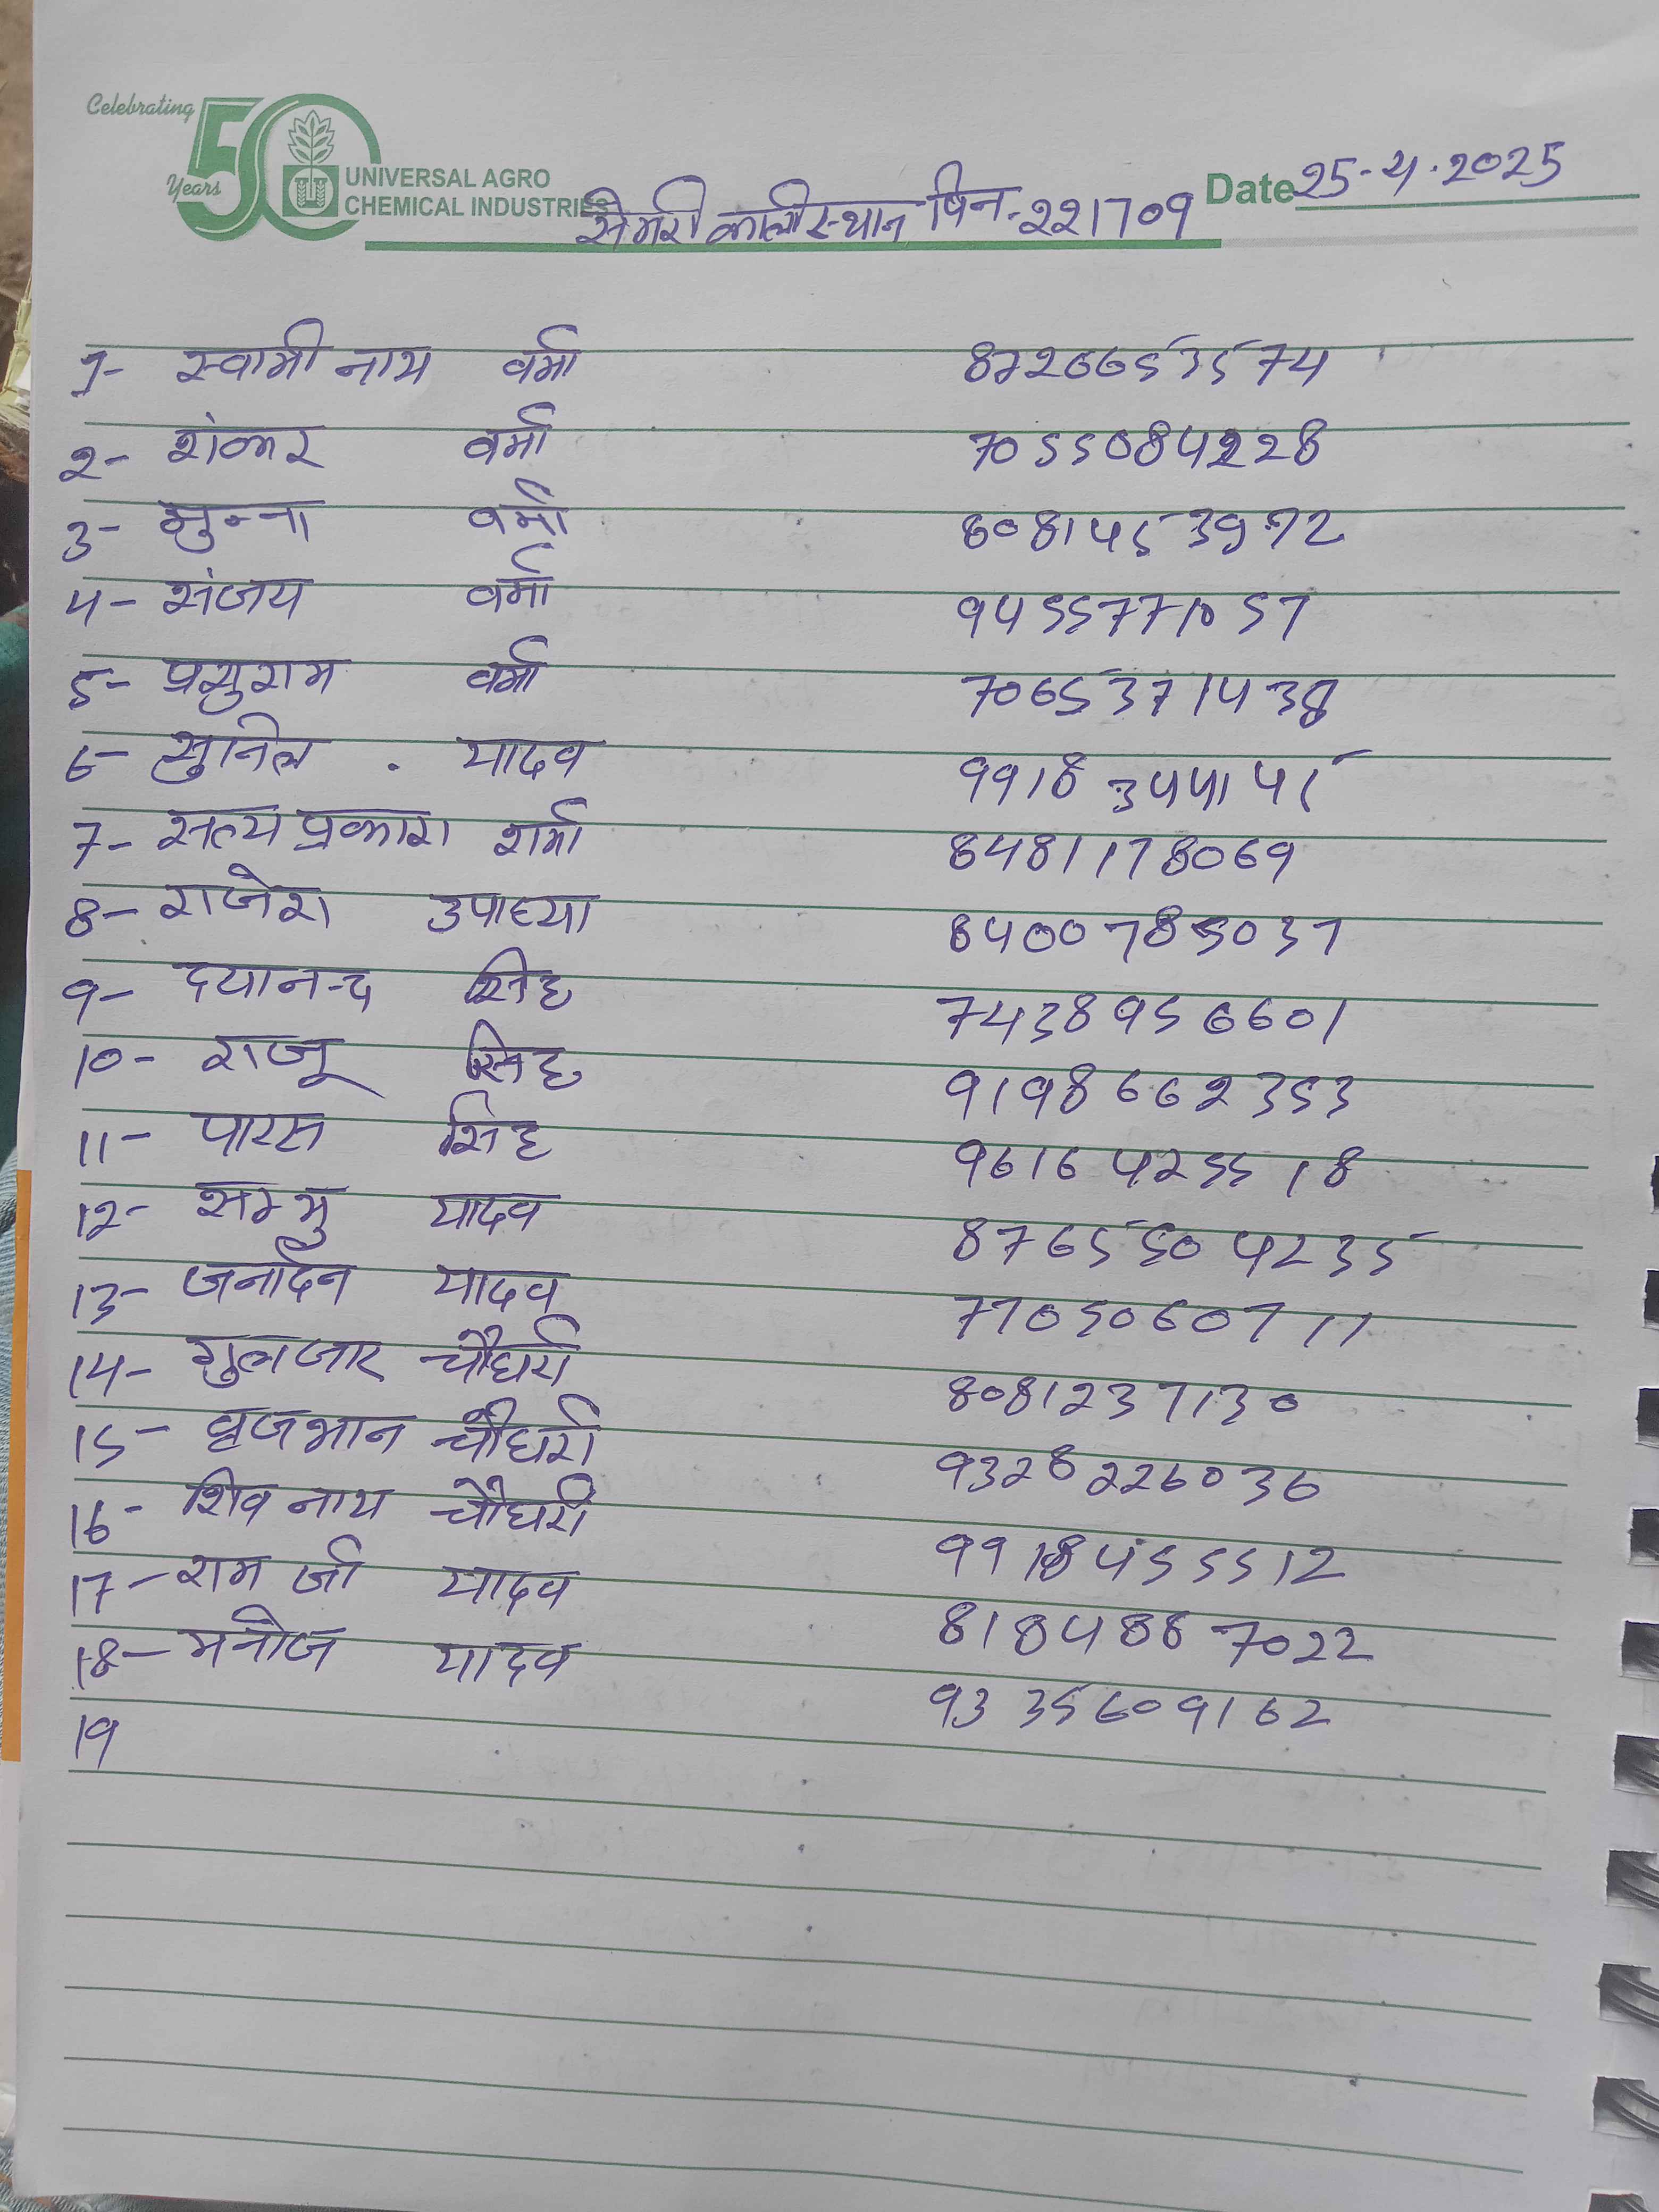 Celebrating 50 Years
UNIVERSAL AGRO
CHEMICAL INDUSTRIES
सेमरी कालीस्थान पिन-221709
Date 25-4.2025
1- स्वामी नाथ वर्मा 8726653574
2- शंकर वर्मा 7055084228
3- मुन्ना वर्मा 6081453972
4- संजय वर्मा 9455771057
5- प्रसुराम वर्मा 7065371438
6- सुनिल . यादव 9918344145
7- सत्य प्रकाश शर्मा 8481178069
8- राजेश उपाध्या 8400785037
9- दयानन्द सिंह 7438956601
10- राजू सिंह 9198662353
11- पारस सिंह 9616425518
12- सम्भु यादव 8765504235
13- जर्नादन यादव 7705060711
14- गुलजार चौधरी 8081237130
15- बृजभान चौधरी 9328226036
16- शिव नाथ चौधरी 9918455512
17- राम जी यादव 8184887022
18- मनोज यादव 9335609162
19